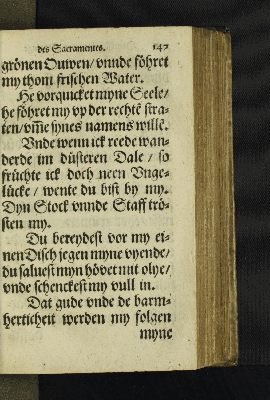 des Sacramentes. 147
grönen Ouwen/ vnnde föhret
my thom frischen Water.
He vorquicket myne Seele/
he föhret my vp der rechtē stra-
ten/ vm̄e synes namens willē.
Vnde wenn ick reede wan-
derde im düsteren Dale / so
früchte ick doch neen Vnge-
lücke / wente du bist by my.
Dyn Stock vnnde Staff trö-
sten my.
Du bereydest vor my ei-
nen Disch jegen myne vyende/
du saluest myn hövet mit olye/
vnde schenckest my vull in.
Dat gude vnde de barm-
herticheit werden my folgen
myne